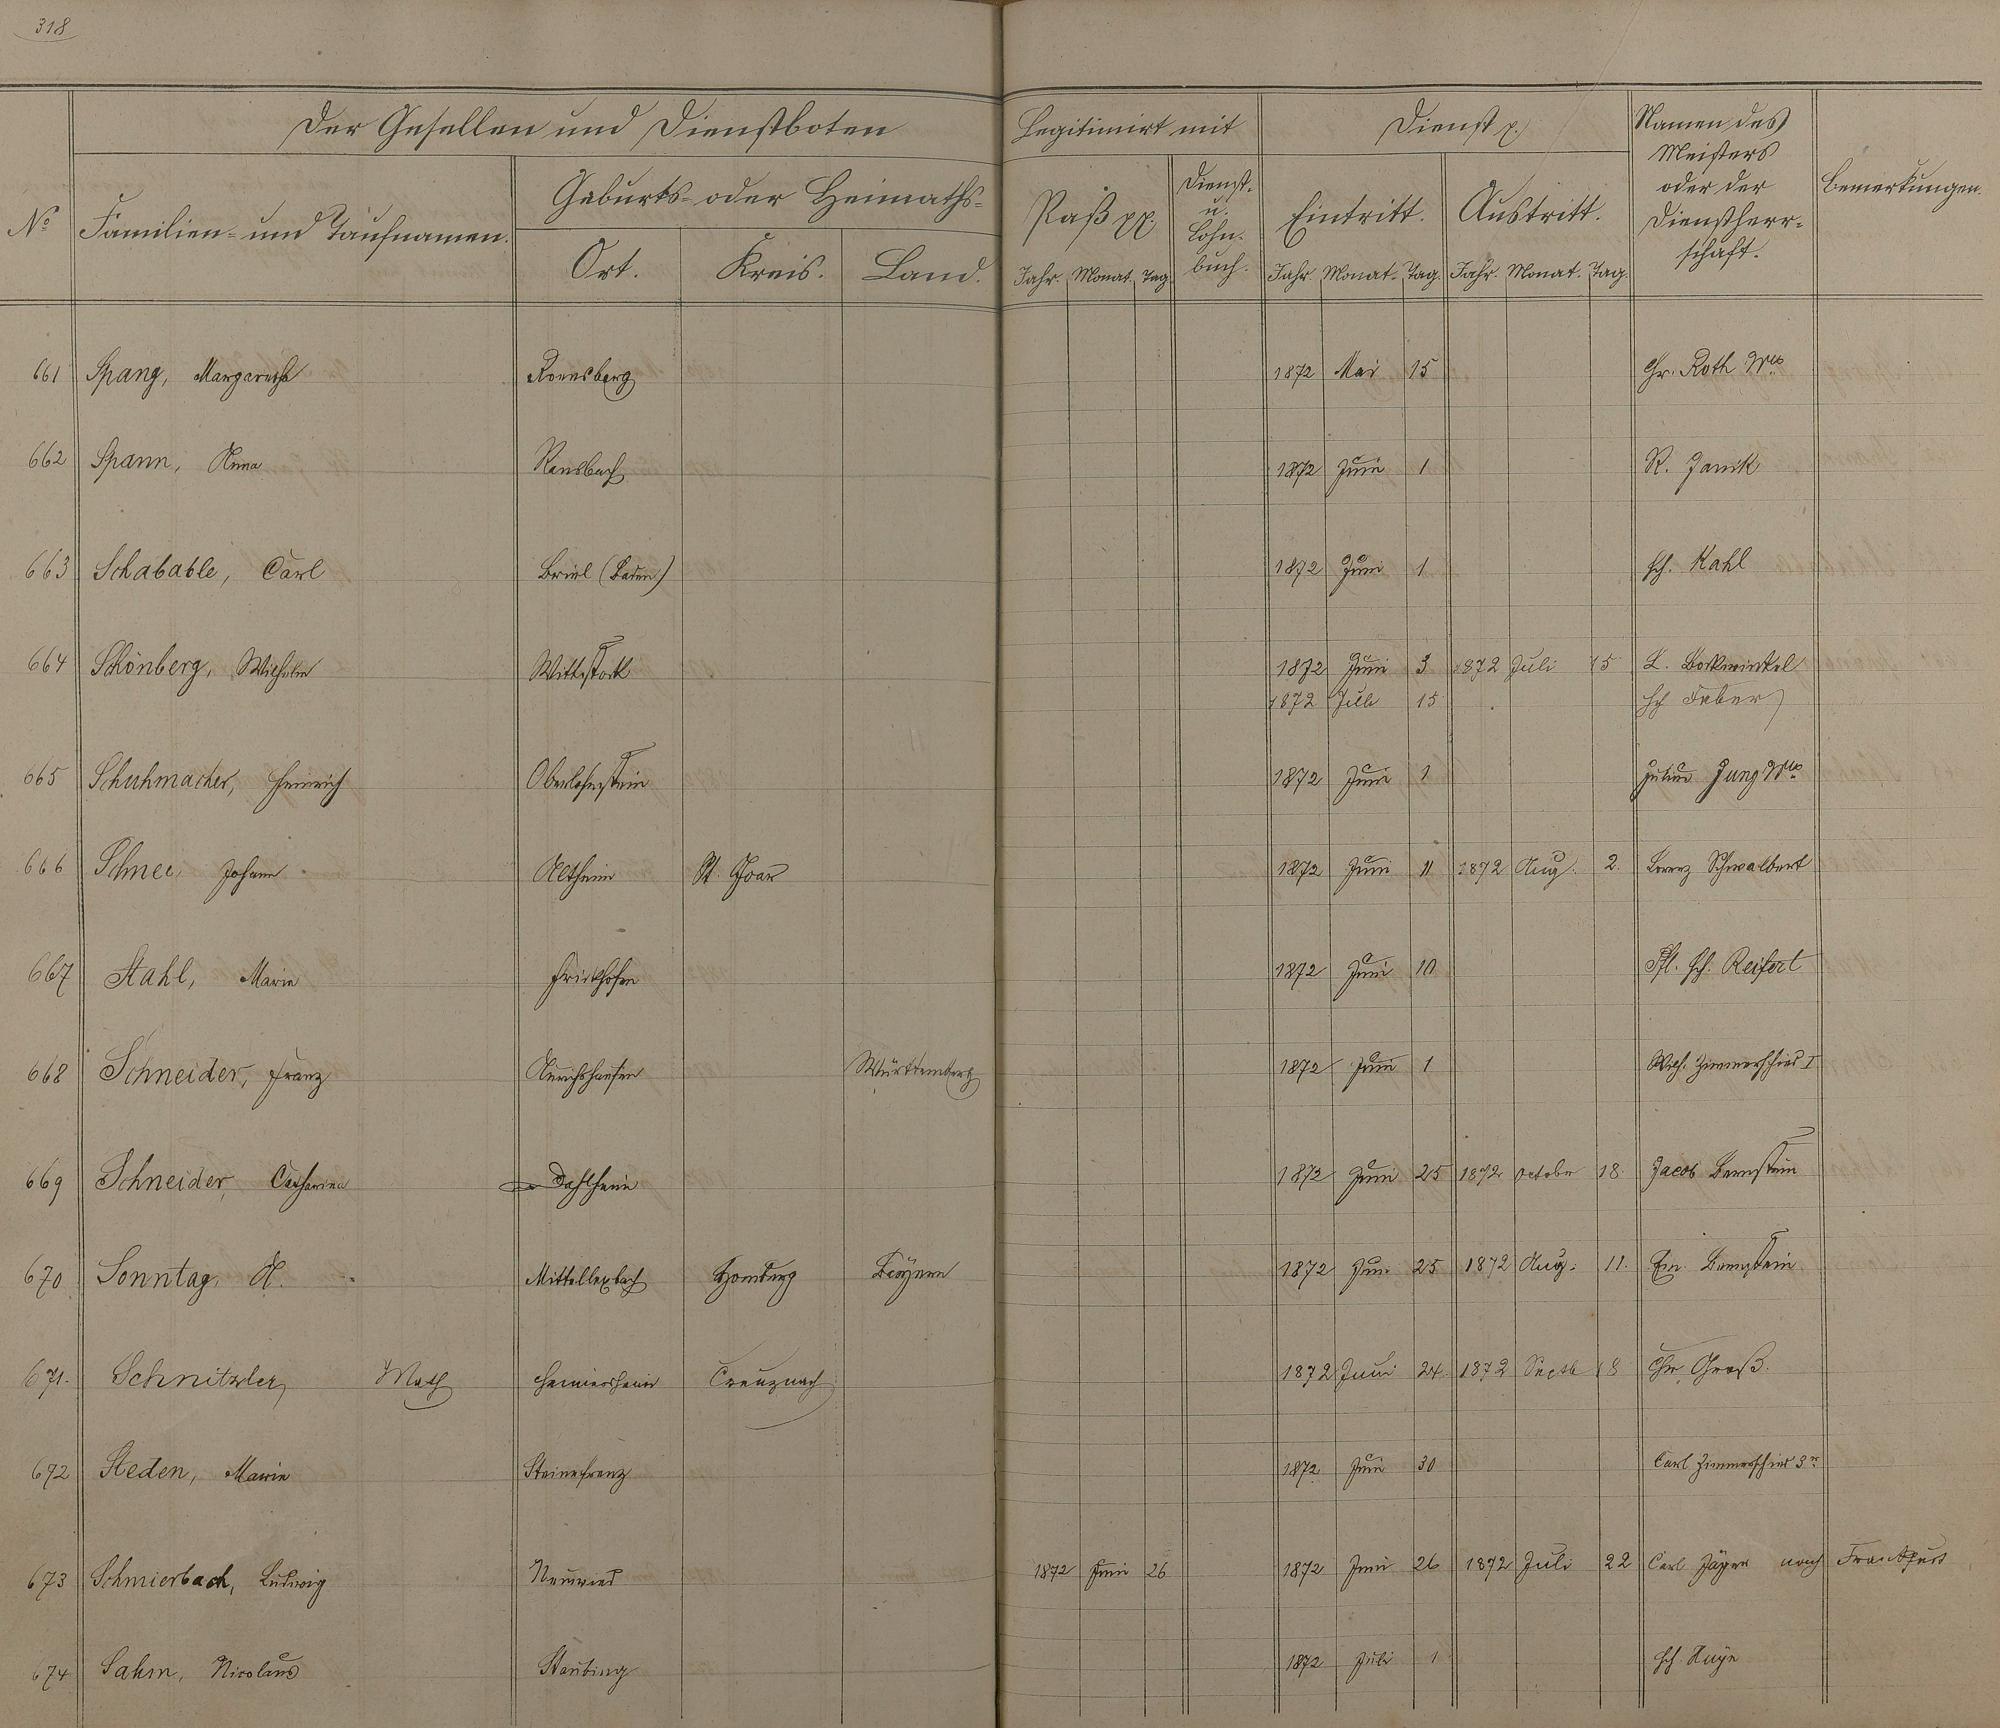 318
Der Gesellen und Dienstboten Legitimirt mit Dienst p. Namen des Meisters oder der Dienstherrschaft. Bemerkungen.
No Familien- und Taufnamen. Geburts- oder Heimaths- Paß pp. Dienst- u. Lohnbuch. Eintritt. Austritt.
Ort. Kreis. Land. Jahr. Monat. Tag. Jahr. Monat. Tag. Jahr. Monat. Tag.
661 Spang, Margaretha 1872 Mai 15 Gr. Roth Wwe
662 Spann, Anna Ransbach 1872 Juni 1 R. Janik
663 Schabable, Carl Briel (Baden) 1872 Juni 1 Hch. Kahl
664 Schönberg, Wilhelm Wittstock 1872 Juni 3 1872 Juli 15 L. Borkwinkel
1872 Juli 15 Hch Faber
665 Schuhmacher, Heinrich Oberlahnstein 1872 Juni 1 Julius Jung Wwe
666 Schnee, Johann Altheim St. Goar 1872 Juni 11 1872 Aug. 2. Lorenz Schwalbert
667 Stahl, Marie Frickhofen 1872 Juni 10 Phl. Hch. Reifert
668 Schneider, Franz Württemberg 1872 Juni 1 Wilh. Zimmerschied I
669 Schneider, Catharina Dahlheim 1872 Juni 25 1872 October 18. Jacob Bernstein
670 Sonntag, A. Mittellexbach Homburg Bayern 1872 Juni 25 1872 Aug. 11. Em. Bernstein
671. Schnitzler, Math Heimersheim Creuznach 1872 Juni 24. 1872 Septb 18 Chr. Groß.
672 Steden, Marie Steinefrenz 1872 Juni 30 Carl Zimmerschied 3r
673 Schmierbach, Ludwig Neuwied 1872 Juni 26 1872 Juni 26 1872 Juli 22 Carl Jäger nach Frankfurt
674 Sahm, Nicolaus Staubing 1872 Juli 1 Hch.